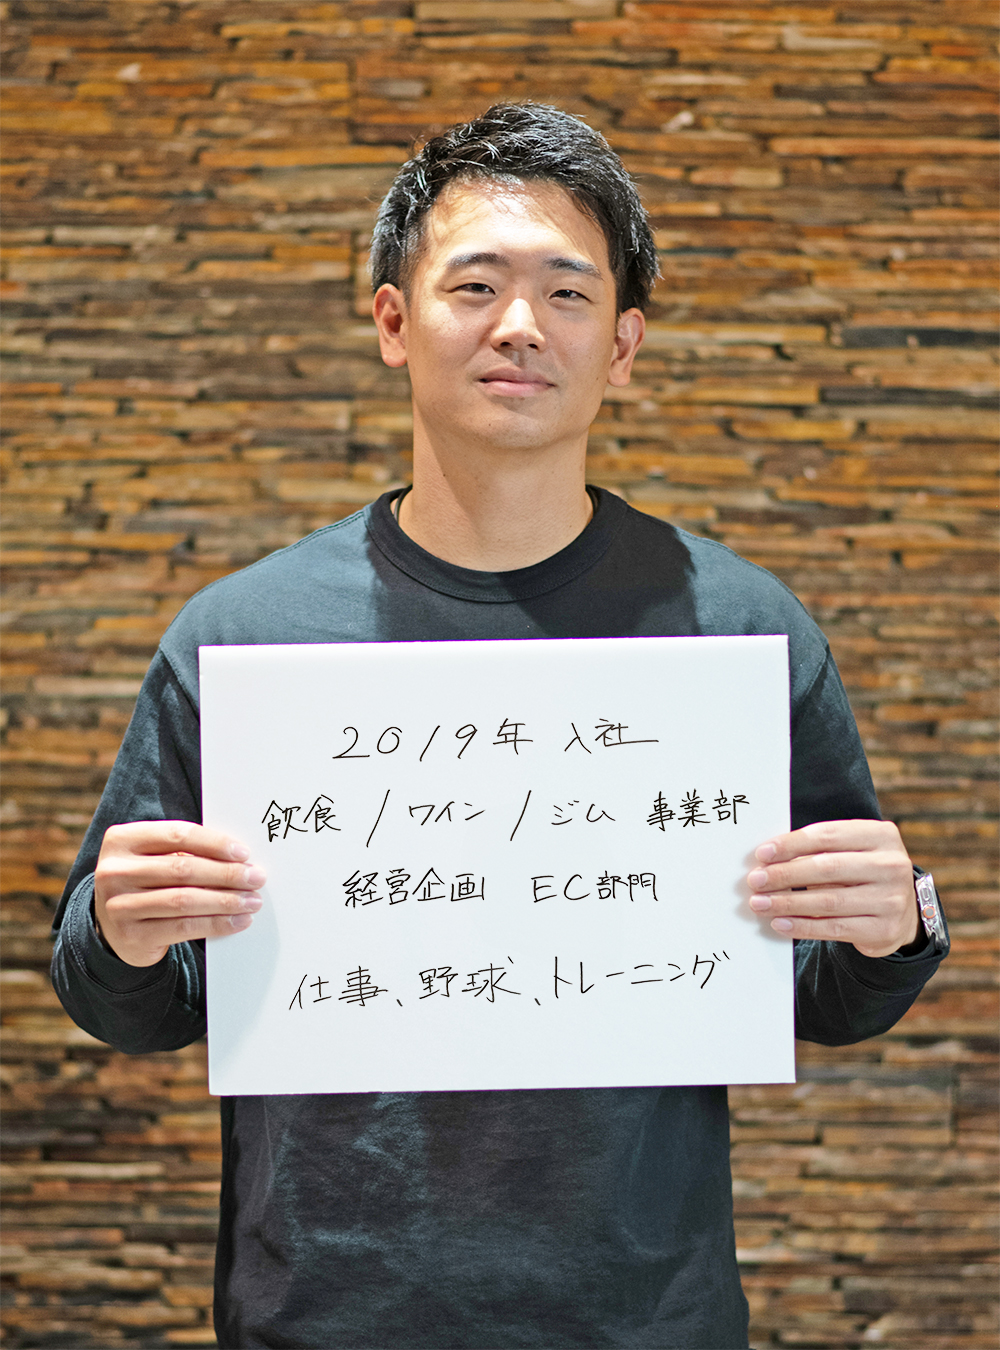 2019年 入社
飲食 / ワイン / ジム 事業部
経営企画 EC部門
仕事、野球、トレーニング